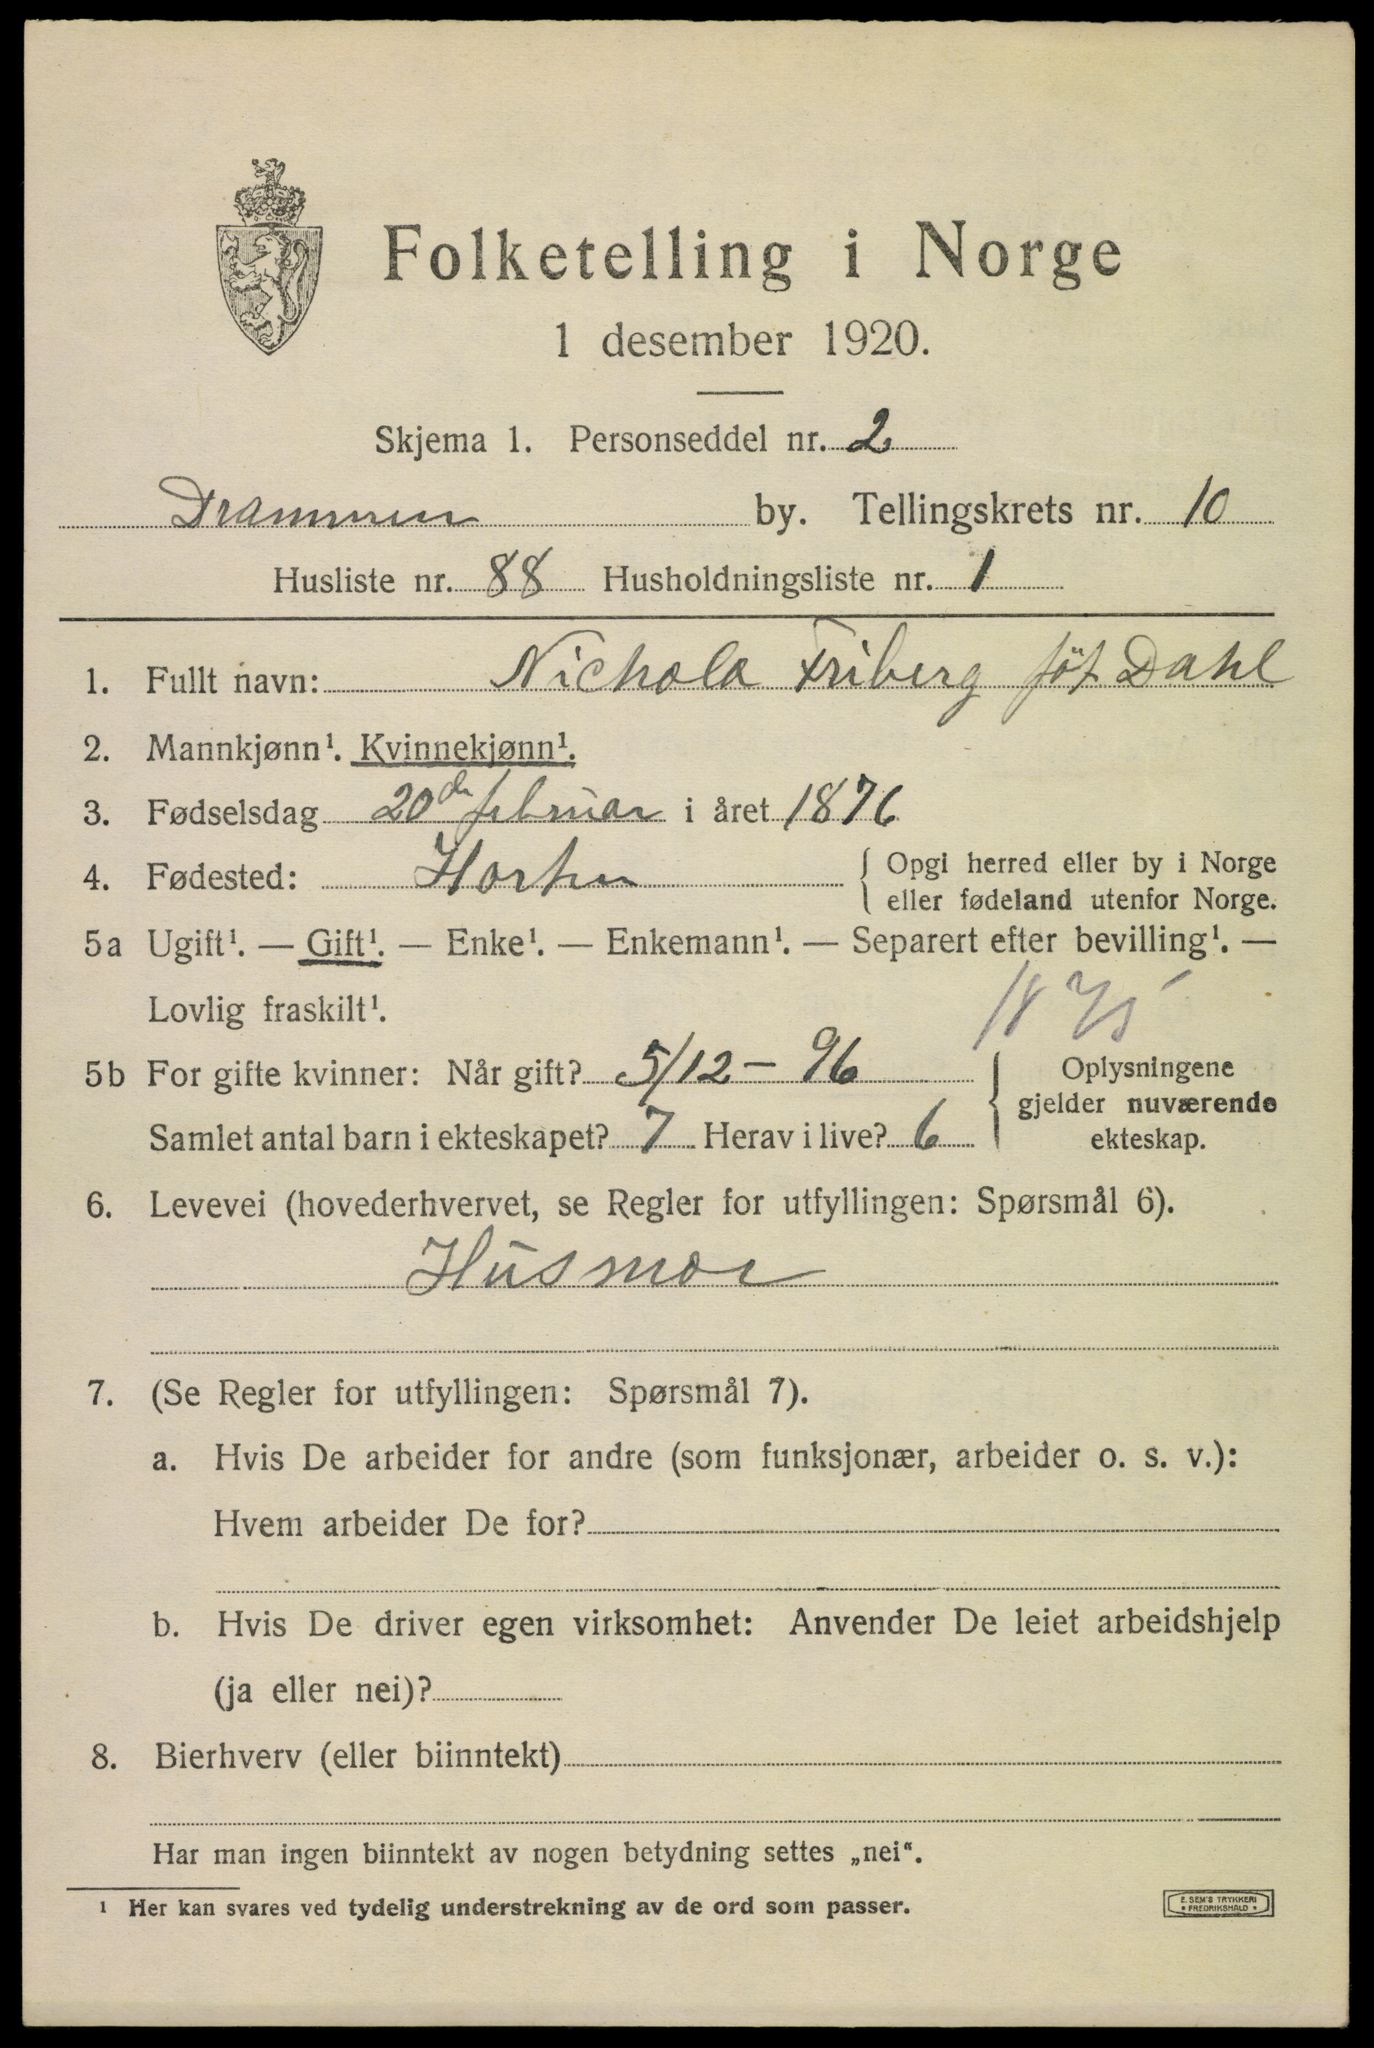 Folketelling i Norge
1 desember 1920.
Skjema 1. Personseddel nr. 2
Drammen by. Tellingskrets nr. 10
Husliste nr. 88 Husholdningsliste nr. 1
1. Fullt navn: Nichola Friberg föt Dahl
2. Mannkjønn¹. Kvinnekjønn¹.
3. Fødselsdag 20de februar i året 1876
4. Fødested: Horten { Opgi herred eller by i Norge
eller fødeland utenfor Norge.
5a Ugift¹. — Gift¹. — Enke¹. — Enkemann¹. — Separert efter bevilling¹. —
Lovlig fraskilt¹.
1875
5b For gifte kvinner: Når gift? 5/12 – 96
Samlet antal barn i ekteskapet? 7 Herav i live? 6
{ Oplysningene
gjelder nuværende
ekteskap.
6. Levevei (hovederhvervet, se Regler for utfyllingen: Spørsmål 6).
Husmor
7. (Se Regler for utfyllingen: Spørsmål 7).
a. Hvis De arbeider for andre (som funksjonær, arbeider o. s. v.):
Hvem arbeider De for?
b. Hvis De driver egen virksomhet: Anvender De leiet arbeidshjelp
(ja eller nei)?
8. Bierhverv (eller biinntekt)
Har man ingen biinntekt av nogen betydning settes „nei“.
¹ Her kan svares ved tydelig understrekning av de ord som passer.
E. SEM'S TRYKKERI
* FREDRIKSHALD *